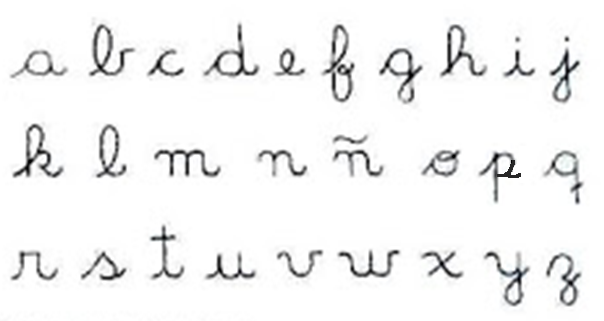 a b c d e f g h i j
k l m n ñ o p q
r s t u v w x y z